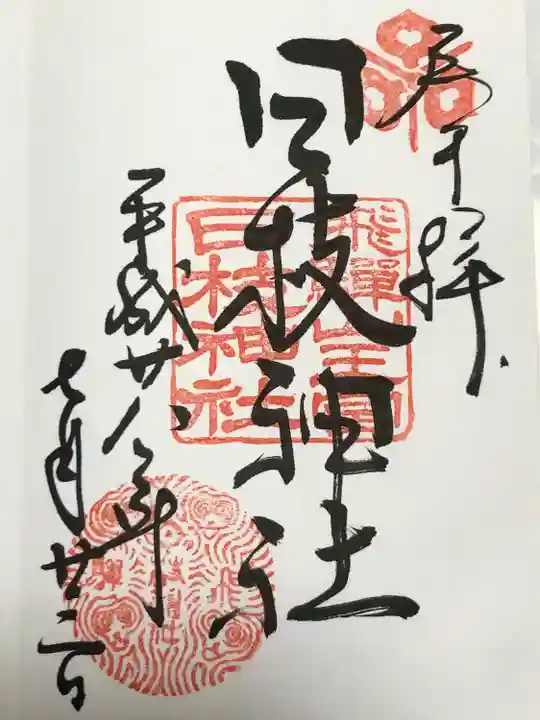 奉拝
日枝神社
飛騨山王宮
日枝神社
平成廿八年
七月廿二日